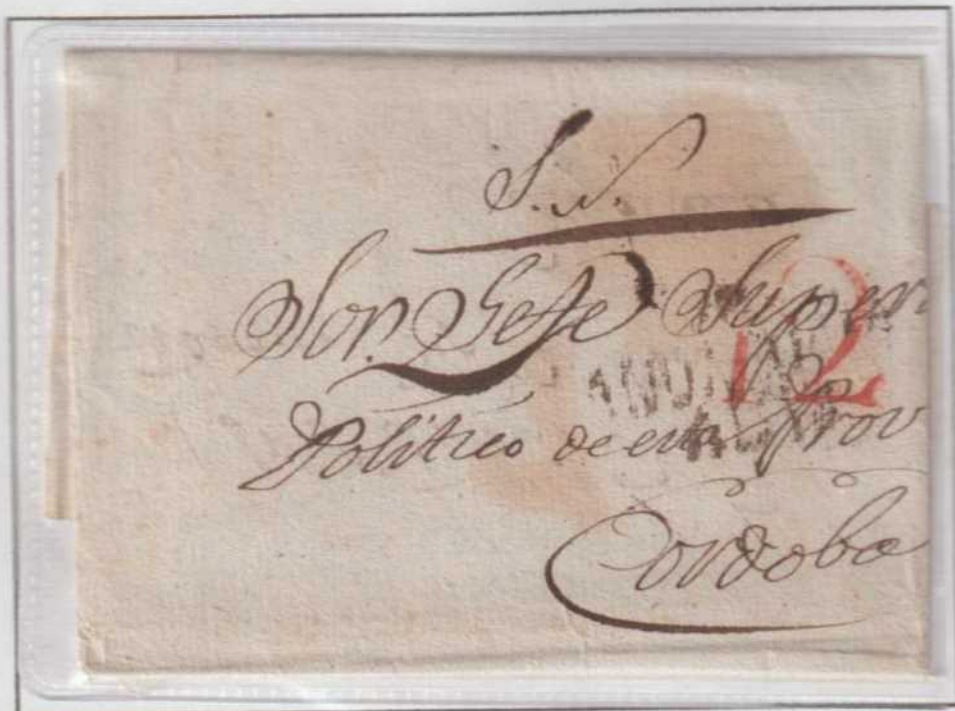 S. N.
Sor. Gefe Super
Politico de esta Prov
12
Cordoba